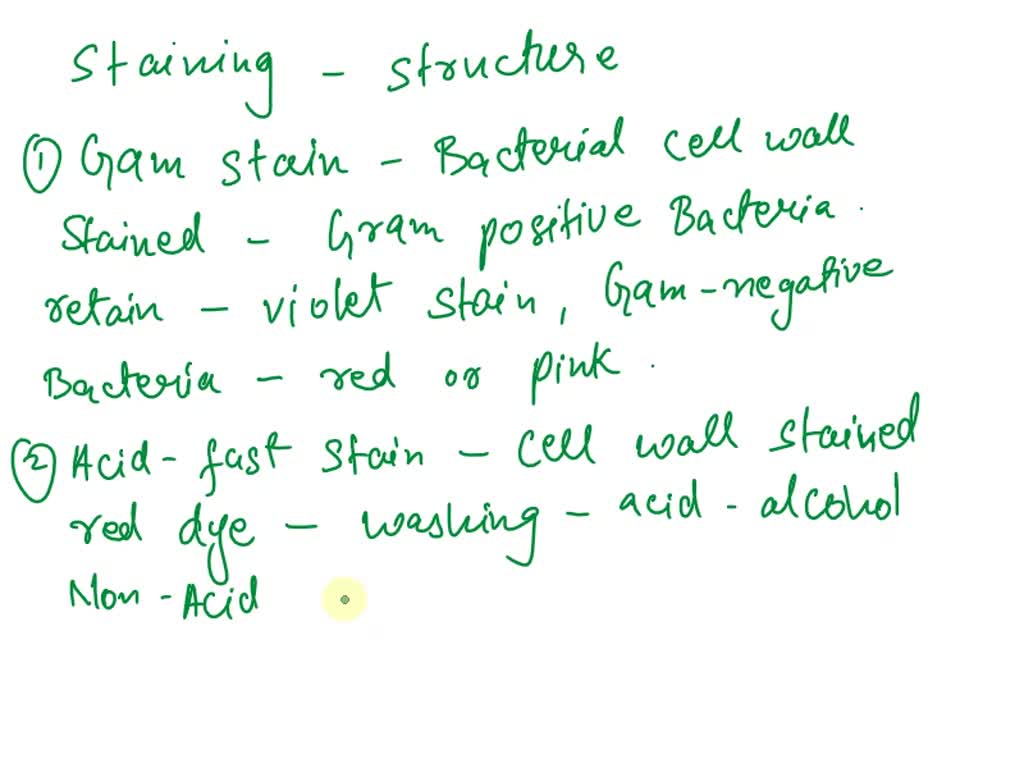 Staining - structure
① Gram stain - Bacterial cell wall
Stained - Gram positive Bacteria.
retain - violet stain, Gram-negative
Bacteria - red or pink.
② Acid-fast stain - cell wall stained
red dye - washing - acid-alcohol
Non-Acid